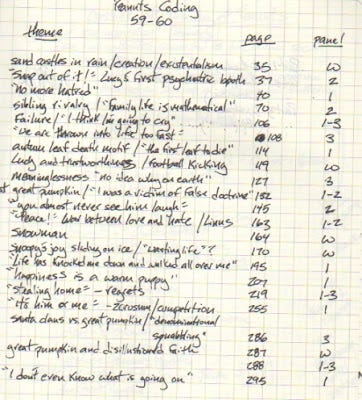 Peanuts Coding
59-60
theme page panel
sand castles in rain/creation/existentialism 35 W
"Snap out of it!" = Lucy's first psychiatric booth 37 2
"no more hatred" 40 1
sibling rivalry / "Family life is mathematical" 70 2
Failure / "I think I'm going to cry" 106 1-3
"We are thrown into life too fast" = 108 3
autumn leaf death motif / "the first leaf to die" 114 1
Lucy and trustworthiness / Football Kicking 119 W
meaninglessness "no idea why on earth" 127 3
great pumpkin / "I was a victim of false doctrine" 132 1-2
"you almost never see him laugh" = 145 2
"Peace!" = War between love and hate / Linus 163 1-2
snowman 164 W
snoopy's joy sliding on ice / "wasting life"? 170 W
"Life has knocked me down and walked all over me" 195 1
"happiness is a warm puppy" 207 1
"stealing home" = regrets 219 1-3
"It's him or me" = zerosum/competition 255 1
santa claus vs. great pumpkin / "denominational
squabbling" 286 3
great pumpkin and disillusioned faith 287 W
288 1-3
"I don't even know what is going on" 295 1